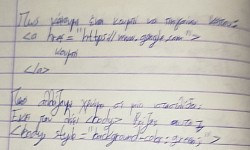 Πως κάνουμε ένα κουμπί να πηγαίνει
<a href="https://www.google.com">
κουμπί
</a>
Πως αλλάζουμε χρώμα σε μια ιστοσελίδα;
<body> βάζεις αυτό
<body style="background-color: green;">